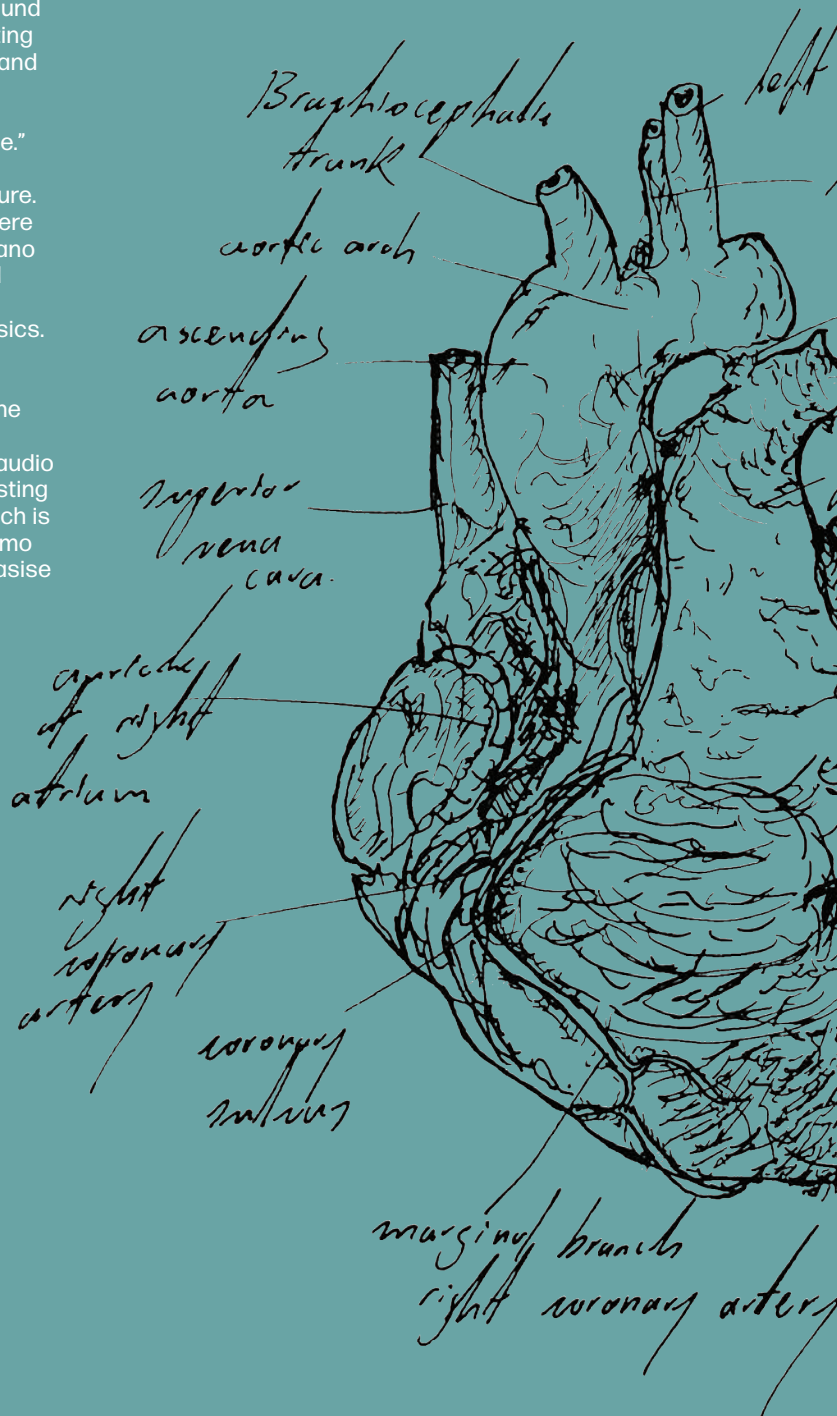 und
ing
and
e.”
ure.
ere
ano
l
sics.
ne
audio
sting
ch is
mo
asise
Braphiocephalic
trunk
left
aortic arch
ascending
aorta
superior
vena
cava.
auricle
of right
atrium
right
coronary
artery
coronary
sulcus
marginal branch
right coronary artery